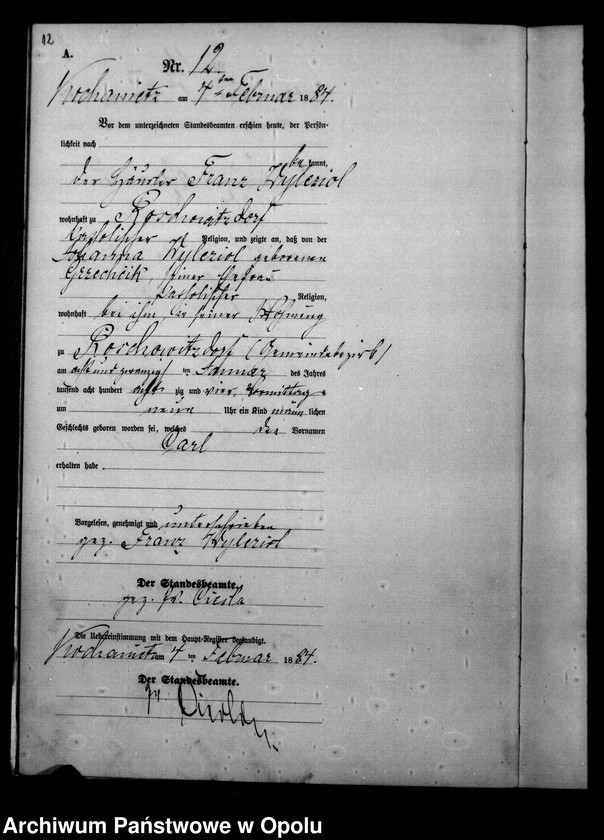 12
A.
Nr. 12
Kochanietz am 4ten Februar 1884.
Vor dem unterzeichneten Standesbeamten erschien heute, der Persön-
lichkeit nach
bekannt,
der Häusler Franz Wyleziol
wohnhaft zu Roschowitzdorf
katholischer Religion, und zeigte an, daß von der
Johanna Wyleziol geborenen
Grzechcik, seiner Ehefrau
katholischer Religion,
wohnhaft bei ihm in seiner Wohnung
zu Roschowitzdorf (Gemeindebezirk)
am acht und zwanzig ten Januar des Jahres
tausend acht hundert acht zig und vier, Vormittags
um neun Uhr ein Kind männ lichen
Geschlechts geboren worden sei, welches den Vornamen
Carl
erhalten habe.
Vorgelesen, genehmigt und unterschrieben
gez. Franz Wyleziol
Der Standesbeamte.
gez. Ciesla
Die Uebereinstimmung mit dem Haupt-Register beglaubigt.
Kochanietz am 4 ten Februar 1884.
Der Standesbeamte.
Archiwum Państwowe w Opolu